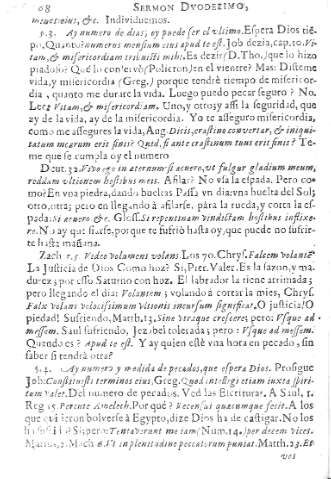 08 SERMON DVODEZIMO,
&c. Individuemos.
5.3. Ay numero de dias, ay puede ser el vltimo. Espera Dios tiẽ-
po. Quanto? numerus mensium eius apud te est. Job dezia, cap. 10. Vi-
tam, & misericordiam tribuisti mihi. Es dezir (D. Tho.) que lo hizo
piadoso? en el vientre? Mas: Disteme
vida, y misericordia (Greg.) porque tendrè tiempo de misericor-
dia, quanto me durare la vida. Luego puedo pecar seguro? No.
Lee: Vitam, & misericordiam. Uno, y otro; y assi la seguridad, que
ay de la vida, ay de la misericordia. Yo te asseguro misericordia,
como me assegures la vida, Aug. Dicis, crastino convertar, & iniqui-
tatum mearum erit finis? Quid, si ante crastinum tuus erit finis? Te-
me que se cumpla oy el numero
Deut. 32. Vivo ego in aeternum si acuero, vt fulgur gladium meum,
reddam vltionem hostibus meis. Afilar? No vsa la espada. Pero co-
mo? En vna piedra, dando bueltas Passa vn dia: vna buelta del Sol;
otro, otra; pero en llegando à afilarse, pàra la rueda, y corta la es-
pada: Si acuero &c. Gloss. Si repentinam vindictam hostibus inflixe-
ro. No ay que fiarse, porque te sufriò hasta oy, que puede no sufrir-
te hasta mañana.
Zach 5.5. Video volumen volans Los 70. Chrys. Falcem volantẽ
La Justicia de Dios Como hoz? Si, Pier. Valer. Es la sazon, y ma-
durez; por esso Saturno con hoz. El labrador la tiene arrimada;
pero llegando el dia: Volantem; volando à cortar la mies, Chrys.
Falx volans velocissimum vltionis incursum significat. O justicia! O
piedad! Sufriendo, Matth. 13. Sine vtraque crescere; pero: Vsque ad
messem. Saul sufriendo, Jezabel tolerada; pero: Vsque ad messem.
Quando es? Apud te est. Y ay quien estè vna hora en pecado, sin
saber si tendrà otra?
5.4. Ay numero y medida de pecados, que espera Dios. Prosigue
Job: Constituisti terminos eius, Greg. Quod intellegi etiam iuxta spiri-
tum Valet. Del numero de pecados. Ved las Escrituras. A Saul, 1.
Reg 15. Percute Amelech. Porquè? Recensui quaecumque fecit. A los
que quisieron bolverse à Egypto, dize Dios ha de castigar. No los
Tentaverunt me iam (Num. 14.) per decem vices.
2. Mach 6. Vt in plenitudine peccatorum puniat. Matth. 23. Et
vos